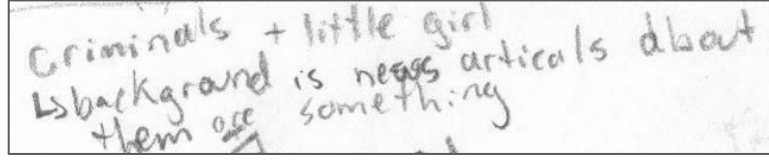 Criminals + little girl
↳background is news articals about
them orr something